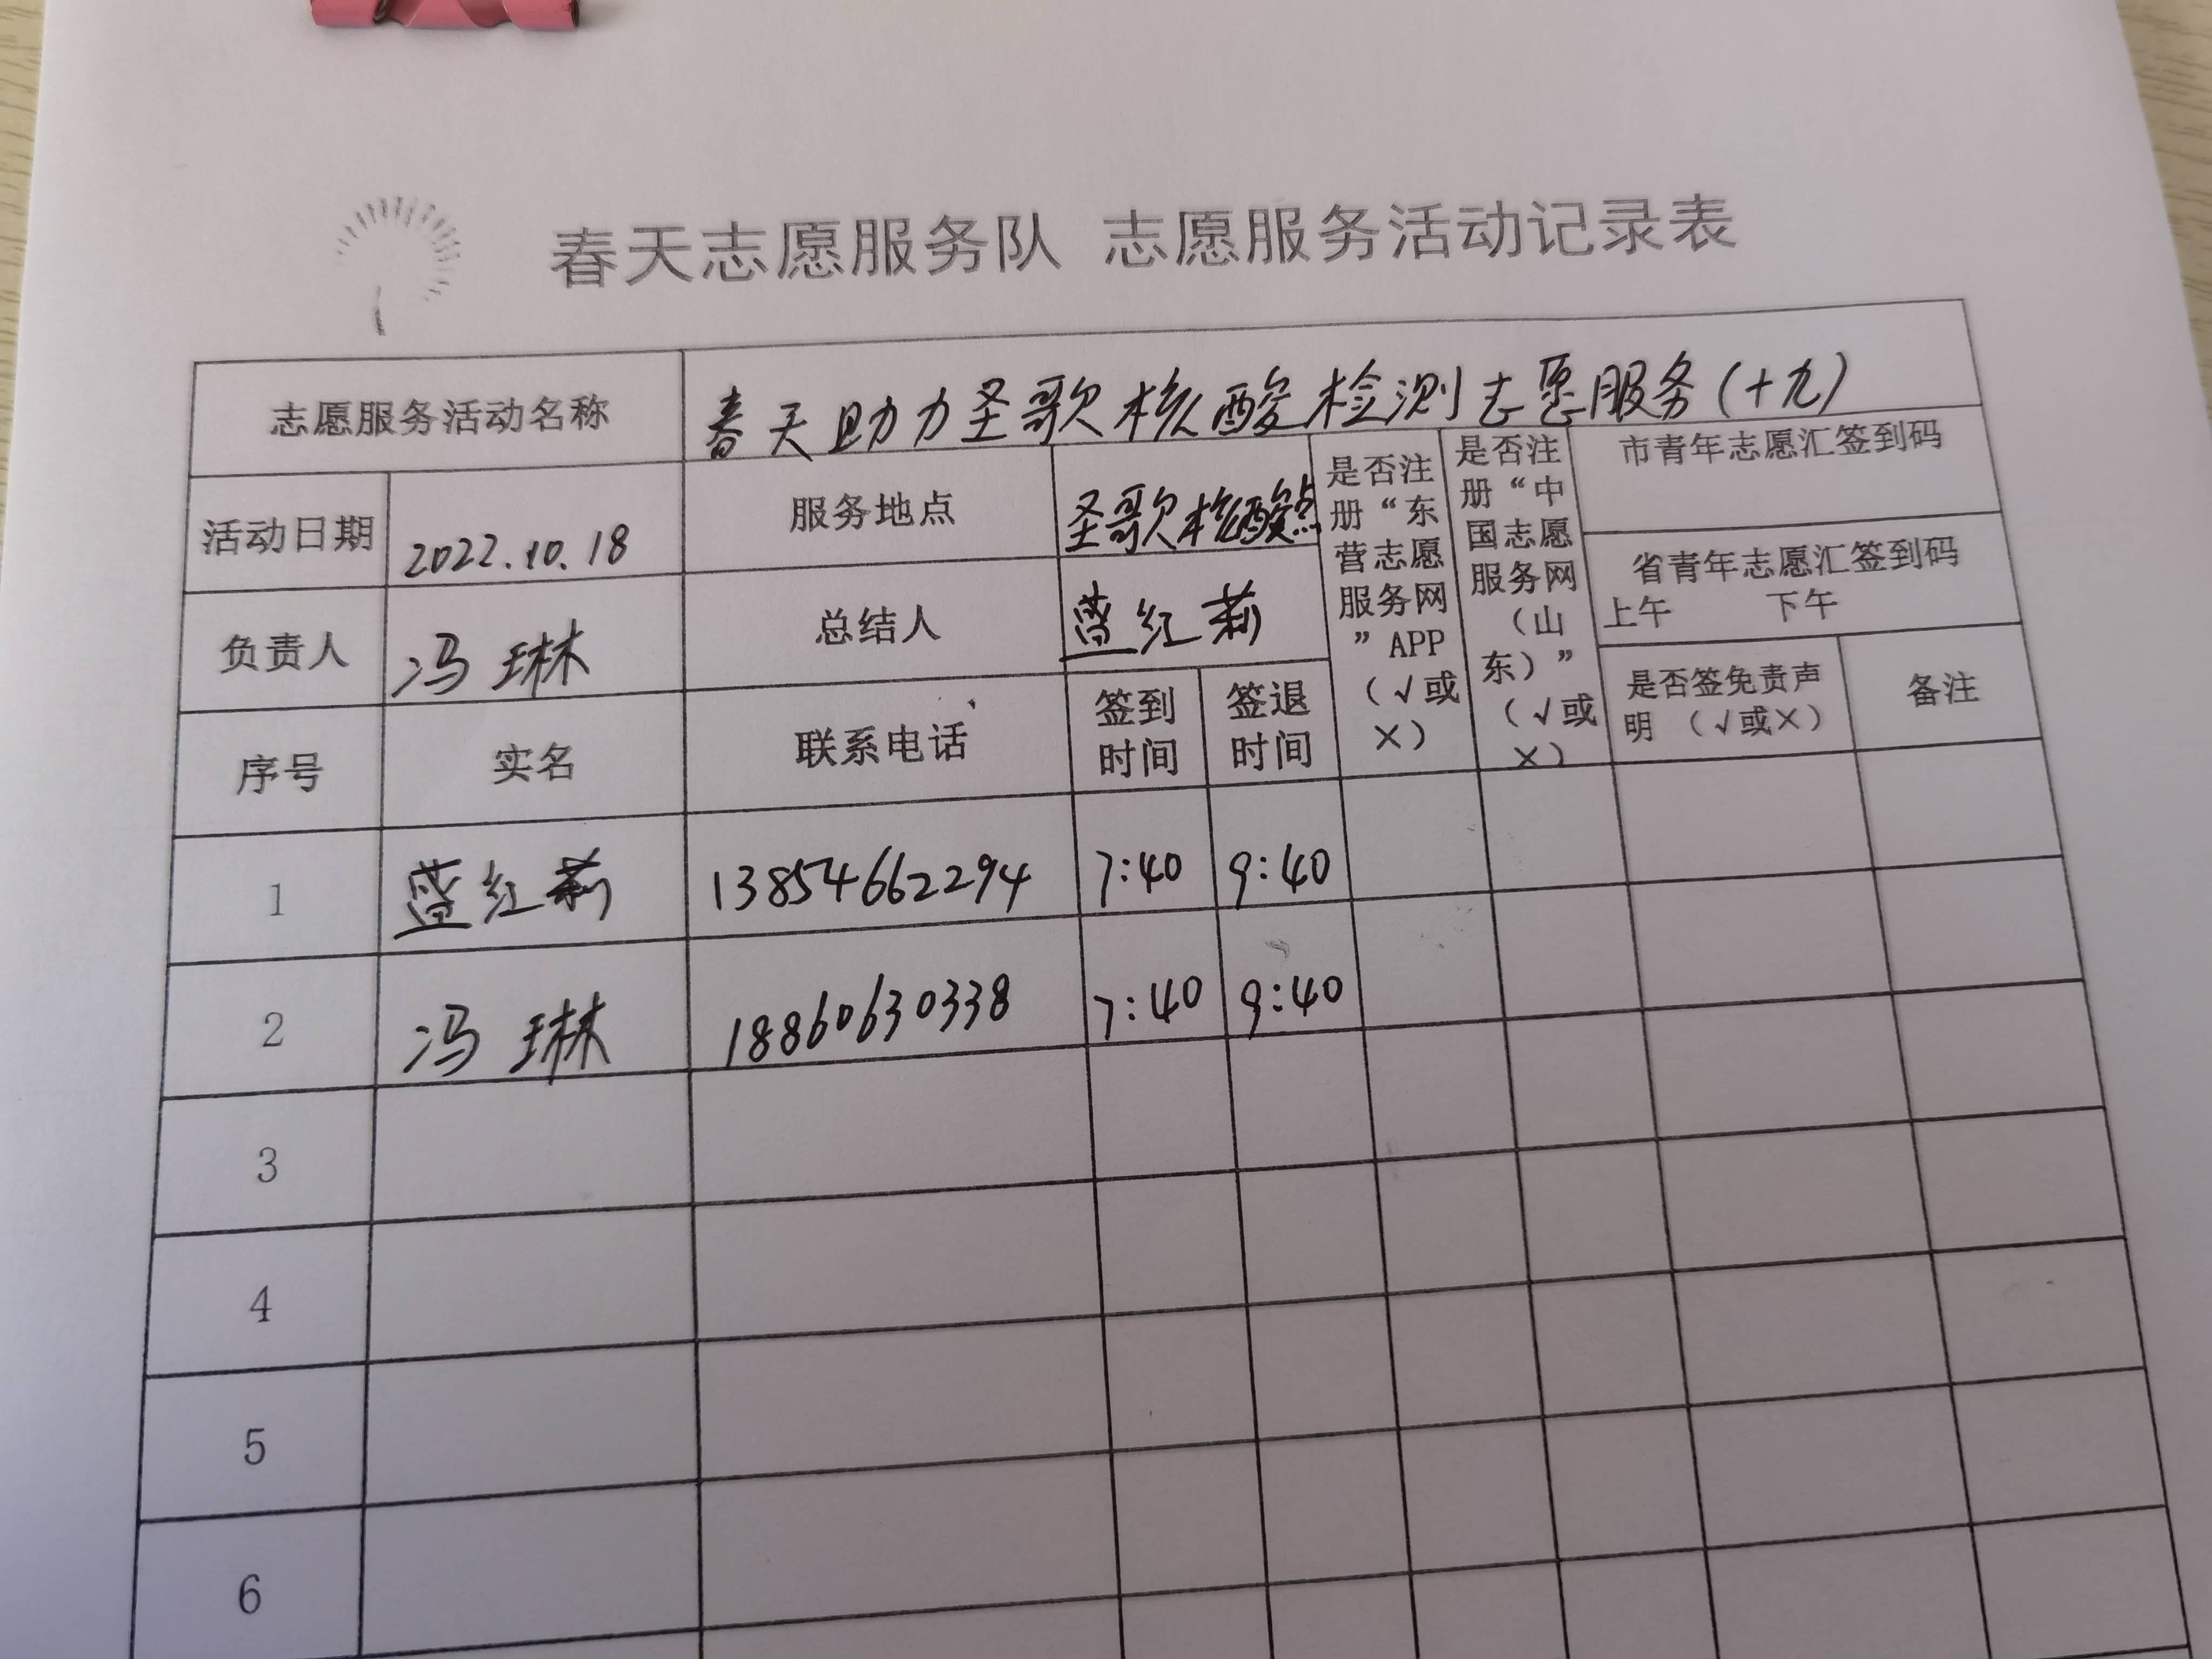 春天志愿服务队 志愿服务活动记录表
志愿服务活动名称 春天助力圣歌核酸检测志愿服务(十九)
活动日期 2022.10.18 服务地点 圣歌核酸点
负责人 冯琳 总结人 蓝红莉
是否注
册“东
营志愿
服务网
”APP
（√或
×）
是否注
册“中
国志愿
服务网
（山
东）”
（√或
×）
市青年志愿汇签到码
省青年志愿汇签到码
上午 下午
是否签免责声
明 （√或×）
备注
序号 实名 联系电话
签到
时间
签退
时间
1 蓝红莉 13854662294 7:40 9:40
2 冯琳 18860630338 7:40 9:40
3
4
5
6